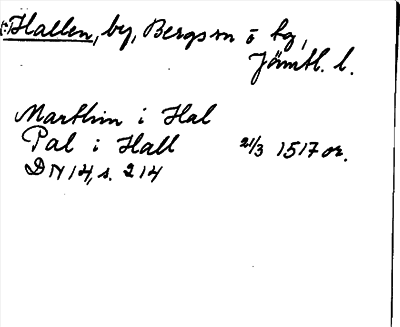 Hallen, by, Bergs sn o tg,
Jämtl. l.
Marthin i Hal
Pal i Hall 21/3 1517 or.
DN 14, s. 214